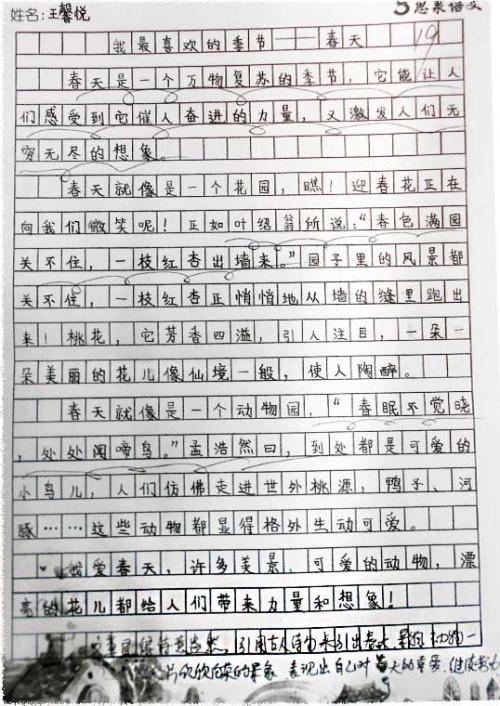 姓名：王馨悦 思泉语文
19
我最喜欢的季节——春天
春天是一个万物复苏的季节，它能让人
们感受到它催人奋进的力量，又激发人们无
穷无尽的想象。
春天就像是一个花园，瞧！迎春花正在
向我们微笑呢！正如叶绍翁所说：“春色满园
关不住，一枝红杏出墙来。”园子里的风景都
关不住，一枝红杏正悄悄地从墙的缝里跑出
来！桃花，它芳香四溢，引人注目，一朵一
朵美丽的花儿像仙境一般，使人陶醉。
春天就像是一个动物园，“春眠不觉晓
，处处闻啼鸟。”孟浩然曰，到处都是可爱的
小鸟儿，人们仿佛走进世外桃源，鸭子、河
豚……这些动物都显得格外生动可爱。
我爱春天，许多美景，可爱的动物，漂
亮的花儿都给人们带来力量和想象！
引用古人诗句来引出春天
片欣欣向荣的景象 表现出自己对春天的喜爱，继续努力